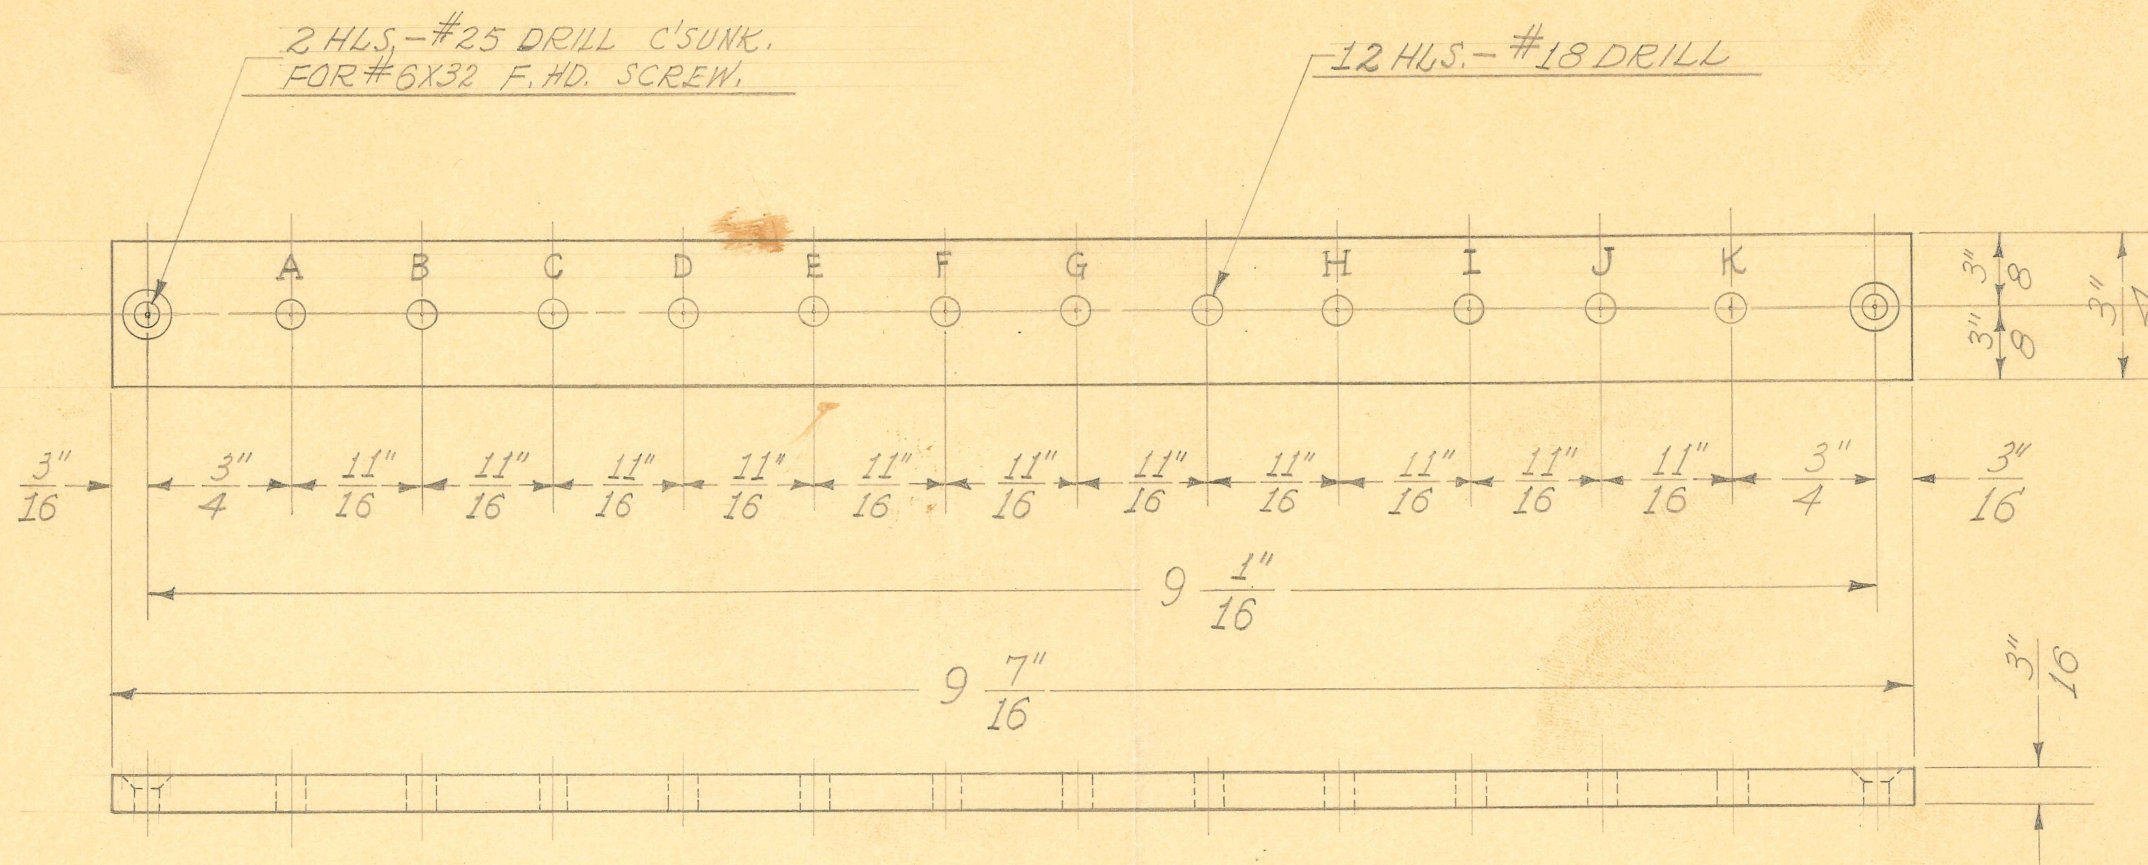 2 HLS,-#25 DRILL C'SUNK.
FOR #6X32 F. HD. SCREW.
12 HLS.- #18 DRILL
A B C D E F G H I J K
3"/8
3"/8
3"/4
3"/16 3"/4 11"/16 11"/16 11"/16 11"/16 11"/16 11"/16 11"/16 11"/16 11"/16 11"/16 11"/16 3"/4 3"/16
9 1"/16
9 7"/16
3"/16